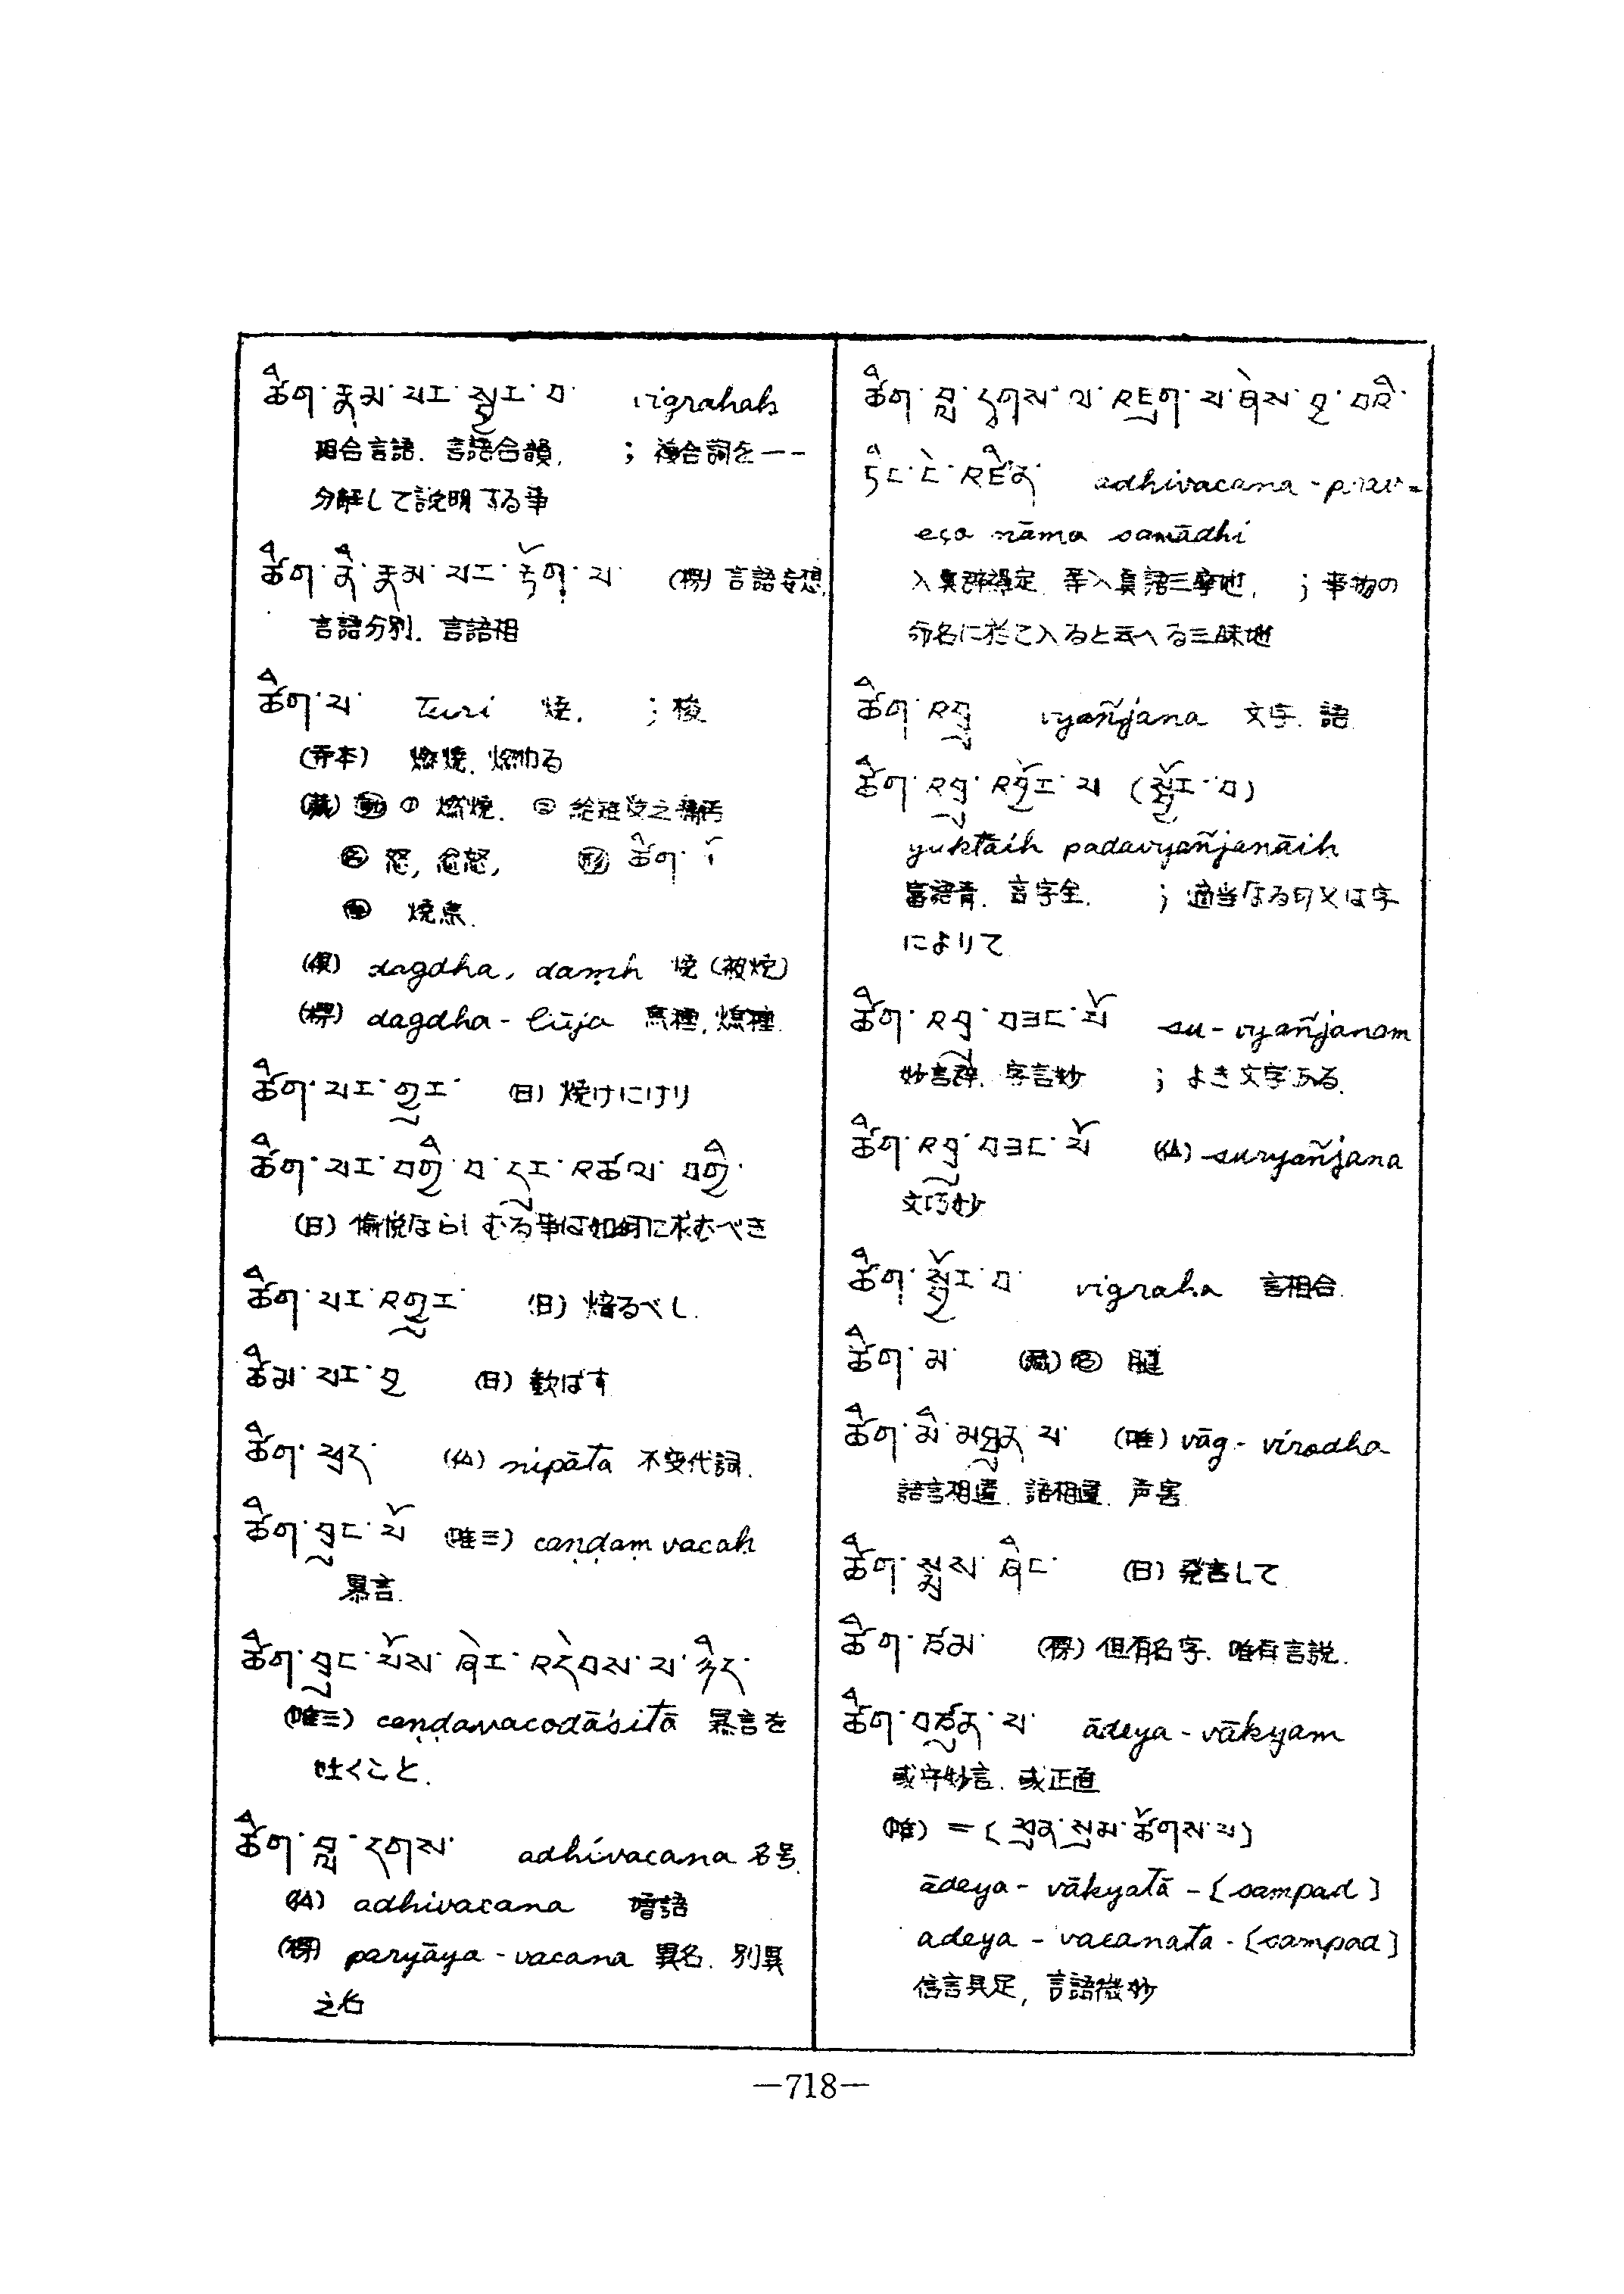 ཚིག་རྣམ་པར་སྦྱར་བ་ vigrahaḥ
相合言語. 言語合韻, ; 複合詞を一一
分解して説明する事
ཚིག་ནི་རྣམ་པར་རྟོག་པ་ (標) 言語妄想,
言語分別. 言語相
ཚིག་པ་ 焼. ;
燃焼. 燃ゆる
(蔵) ① 燃焼. ②
㊔ 怒, 忿怒, ཚིག་
焼焦.
dagdha, daṃh 焼 (被焼)
(標) dagdha - 燋種.
ཚིག་པར་གྱུར་ (日) 焼けにけり
ཚིག་པར་བགྱི་བ་དུར་འཚལ་བགྱི་
(日) 愉悦ならしむる事は如何に求むべき
ཚིག་པར་འགྱུར་ (日) 焙るべし.
ཚིམ་པར་བྱ་ (日) 歓ばす
ཚིག་ཕྲད་ (仏) nipāta 不変代詞.
ཚིག་བྲུང་པོ་ (唯三) caṇḍaṃ vacaḥ
暴言.
ཚིག་བྲུང་པོས་ཞེར་འདེབས་པ་ཉིད་
(唯三) caṇḍavacodāśitā 暴言を
吐くこと.
ཚིག་བླ་དགས་ adhivacana 名号.
(仏) adhivacana 暗語
(標) paryāya - vacana 異名. 別異
之名
ཚིག་བླ་དྭགས་ལ་འཇུག་པ་ཞེས་བྱ་བའི་
ཏིང་ངེ་འཛིན་ adhivacana - prav=
eça nāma samādhi
; 事物の
命名に於て入ると云へる三昧地
ཚིག་འབྲུ vyañjana 文字. 語.
ཚིག་འབྲུ་འབྱོར་པ (སྦྱོར་བ)
yuktaih padavyañjanāih
言字全. ; 適当なる句又は字
によりて
ཚིག་འབྲུ་བཟང་པོ su - vyañjanam
妙言辞. 字言妙 ; よき文字ある.
ཚིག་འབྲུ་བཟང་པོ (仏) suvyañjana
文巧妙
ཚིག་སྦྱོར་བ་ vigraha 言相合.
ཚིག་མ་ (蔵) ㊔
ཚིག་མི་མཐུན་པ་ (唯) vāg - virodha
語言相違. 語相違. 声害.
ཚིག་སྨྲས་ཤིང་ (日) 発言して
ཚིག་ཙམ་ (標) 但有名字. 唯有言説.
ཚིག་བཙུན་པ་ ādeya - vākyam
或守妙言. 或正直
(唯) = (ཕུན་སུམ་ཚོགས་པ)
ādeya - vākyatā - [sampad]
adeya - vacanata - [sampad]
信言具足, 言語微妙
—718—